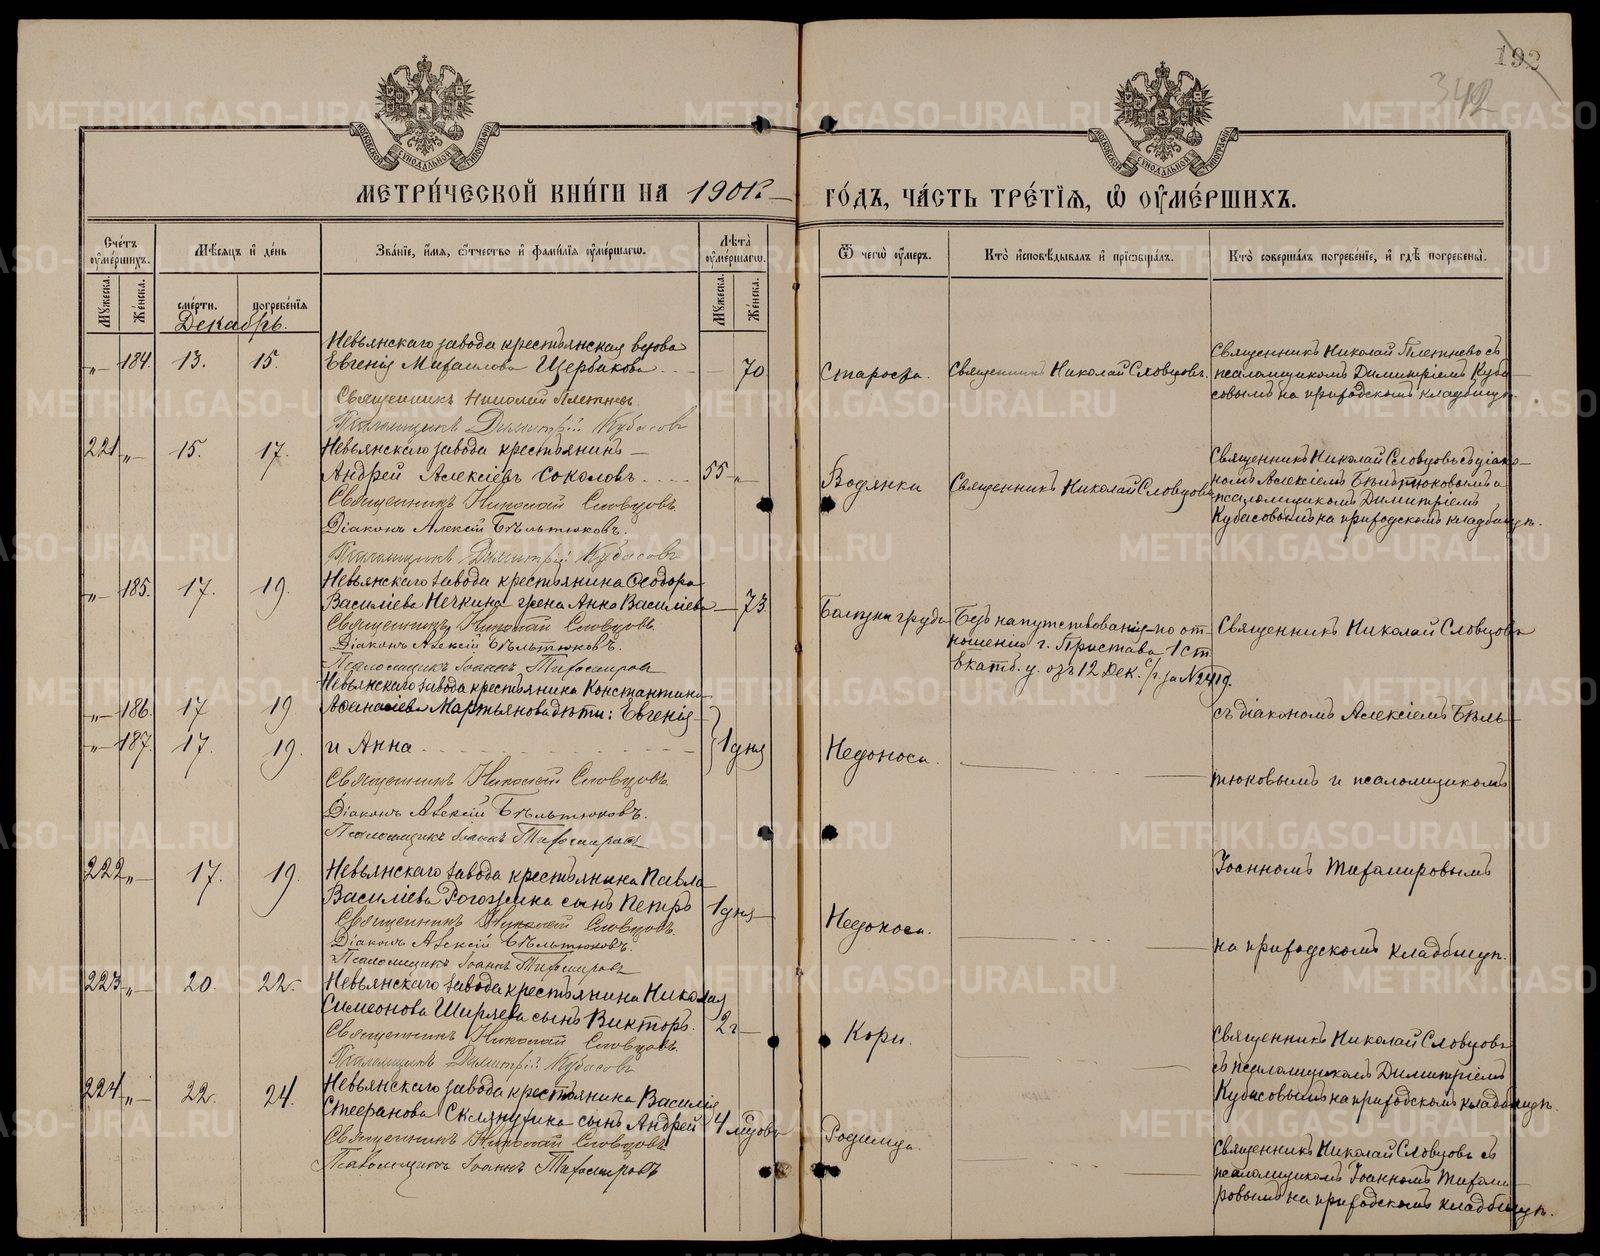 192
342
МОСКОВСКОЙ СѴНОДАЛЬНОЙ ТИПОГРАФІИ
МОСКОВСКОЙ СѴНОДАЛЬНОЙ ТИПОГРАФІИ
МЕТРИ́ЧЕСКОЙ КНИ́ГИ НА 1901 г.
ГО́ДЪ, ЧА́СТЬ ТРЕ́ТІѦ, Ѡ҆ ОУ҆МЕ́РШИХЪ.
Сче́тъ оу҆ме́ршихъ.
Мѣсѧцъ и҆ де́нь
Зва́ніе, и҆́мѧ, ѻ҆́тчество и҆ фами́лїѧ оу҆ме́ршагѡ.
Лѣ́та оу҆ме́ршагѡ.
Ѿ чегѡ̀ оу҆́меръ.
Кто̀ и҆сповѣ́дывалъ и҆ прїѡбща́лъ.
Кто̀ соверша́лъ погребе́ніе, и҆ гдѣ̀ погребены̀.
Мꙋ́жеска.
Же́нска.
сме́рти.
погребе́нїѧ
Мꙋ́жеска.
Же́нска.
Декабрь.
Невьянскаго завода крестьянская вдова
„ 184 13. 15. Евгенія Михаилова Щербакова 70
Священникъ Николай Плетневъ
Псаломщикъ Димитрій Кубасовъ
Старости.
Священникъ Николай Словцовъ.
Священникъ Николай Плетневъ съ
псаломщикомъ Димитріемъ Куба-
совымъ на приходскомъ кладбищѣ.
221 „ 15. 17. Невьянскаго завода крестьянинъ
Андрей Алексіевъ Соколовъ 55 „
Священникъ Николай Словцовъ.
Діаконъ Алексій Бѣльтюковъ.
Псаломщикъ Димитрій Кубасовъ
Водянки
Священникъ Николай Словцовъ
Священникъ Николай Словцовъ съ діако-
номъ Алексіемъ Бѣльтюковымъ и
псаломщикомъ Димитріемъ
Кубасовымъ на приходскомъ кладбищѣ.
„ 185. 17. 19. Невьянскаго завода крестьянина Ѳеодора
Василіева Нечкина жена Анна Василіева 73
Священникъ Николай Словцовъ.
Діаконъ Алексій Бѣльтюковъ.
Псаломщикъ Іоаннъ Тихомировъ
Болѣзни груди
Безъ напутствованія по от-
ношенію г. Пристава 1 ст.
Екатб. у. отъ 12 Дек. с/г. за №
Священникъ Николай Словцовъ
Невьянскаго завода крестьянина Константина
„ 186. 17 19 Аѳанасіева Мартьянова дѣти: Евгенія
„ 187. 17. 19. и Анна 1 дня
Священникъ Николай Словцовъ.
Діаконъ Алексій Бѣльтюковъ.
Псаломщикъ Іоаннъ Тихомировъ
Недоноса.
съ діакономъ Алексіемъ Бѣль-
тюковымъ и псаломщикомъ
222 „ 17. 19. Невьянскаго завода крестьянина Павла
Василіева Рогожина сынъ Петръ 1 дня
Священникъ Николай Словцовъ.
Діаконъ Алексій Бѣльтюковъ.
Псаломщикъ Іоаннъ Тихомировъ
Недоноса.
Іоанномъ Тихомировымъ
на приходскомъ кладбищѣ.
223 „ 20. 22. Невьянскаго завода крестьянина Николая
Симеонова Ширяева сынъ Викторъ. 2 г
Священникъ Николай Словцовъ.
Псаломщикъ Димитрій Кубасовъ
Кори.
Священникъ Николай Словцовъ
съ псаломщикомъ Димитріемъ
Кубасовымъ на приходскомъ кладбищѣ.
224 „ 22. 24. Невьянскаго завода крестьянина Василія
Стефанова сынъ Андрей 4 мѣсяцовъ
Священникъ Николай Словцовъ
Псаломщикъ Іоаннъ Тихомировъ
Родимца.
Священникъ Николай Словцовъ съ
псаломщикомъ Іоанномъ Тихоми-
ровымъ на приходскомъ кладбищѣ.
METRIKI.GASO-URAL.RU